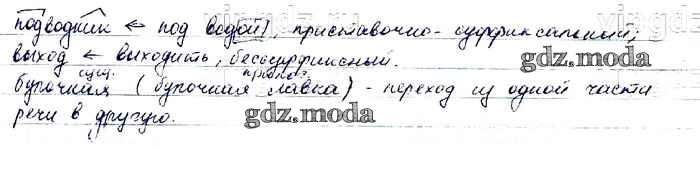 подводник ← под водой, приставочно-суффиксальный;
выход ← выходить, бессуффиксный.
сущ. прилаг.
булочная (булочная лавка) - переход из одной части
речи в другую.
gdz.moda
gdz.moda